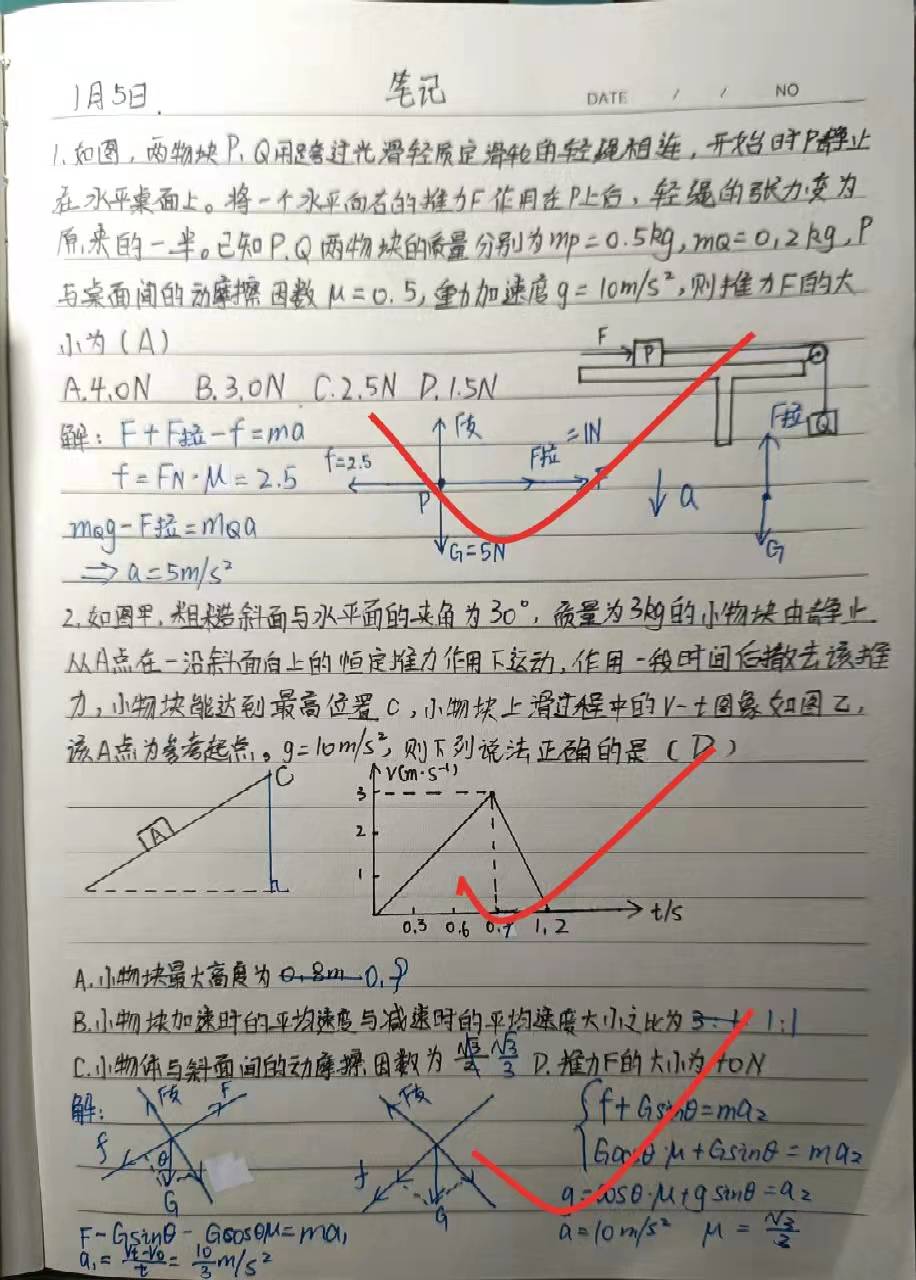 1月5日.
笔记
DATE / / NO
1.如图,两物块P、Q用跨过光滑轻质定滑轮的轻绳相连,开始时P静止
在水平桌面上。将一个水平向右的推力F作用在P上后,轻绳的张力变为
原来的一半。已知P、Q两物块的质量分别为mp=0.5kg,mQ=0.2kg,P
与桌面间的动摩擦因数μ=0.5,重力加速度g=10m/s²,则推力F的大
小为(A)
A.4.0N B.3.0N C.2.5N D.1.5N
F P Q
解:F+F拉-f=ma
f=FN·μ=2.5
mQg-F拉=mQa
⇒a=5m/s²
F支 f=2.5 F拉=1N F P G=5N
a F拉 G
2.如图甲,粗糙斜面与水平面的夹角为30°,质量为3kg的小物块由静止
从A点在一沿斜面向上的恒定推力作用下运动,作用一段时间后撤去该推
力,小物块能达到最高位置C,小物块上滑过程中的v-t图象如图乙,
该A点为参考起点。g=10m/s²,则下列说法正确的是(D)
A C
v(m·s⁻¹)
3
2
1
0.3 0.6 0.9 1.2 t/s
A.小物块最大高度为0.8m 0.9
B.小物块加速时的平均速度与减速时的平均速度大小之比为3:1 1:1
C.小物体与斜面间的动摩擦因数为 √3/3 D.推力F的大小为40N
解:
F支 F f θ G
F支 f G
F-Gsinθ-Gcosθμ=ma₁
a₁=(Vt-V0)/t=10/3 m/s²
f+Gsinθ=ma₂
Gcosθ·μ+Gsinθ=ma₂
g=cosθ·μ+gsinθ=a₂
a=10m/s² μ=√3/3